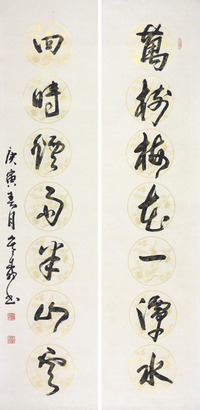 萬樹梅花一潭水
四時煙雨半山雲
庚寅春月